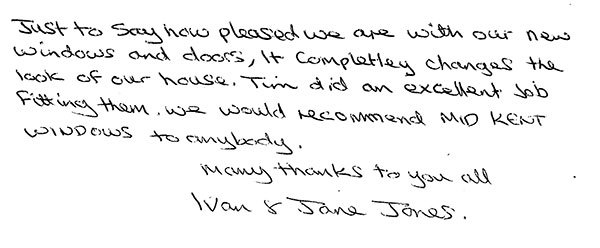 Just to say how pleased we are with our new
windows and doors, It Completley changes the
look of our house. Tim did an excellent job
fitting them. we would recommend MID KENT
WINDOWS to anybody.
Many thanks to you all
Ivan & Jane Jones.